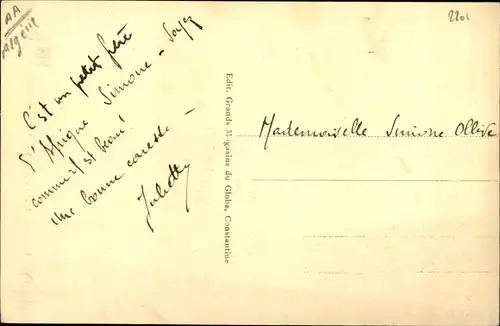 AA
Algérie
2201
C'est un petit frère
d'Afrique Simone - Soyez
comme il est beau!
une bonne caresse -
Juliette
Edit. Grands Magasins du Globe, Constantine
Mademoiselle Simone Ollive